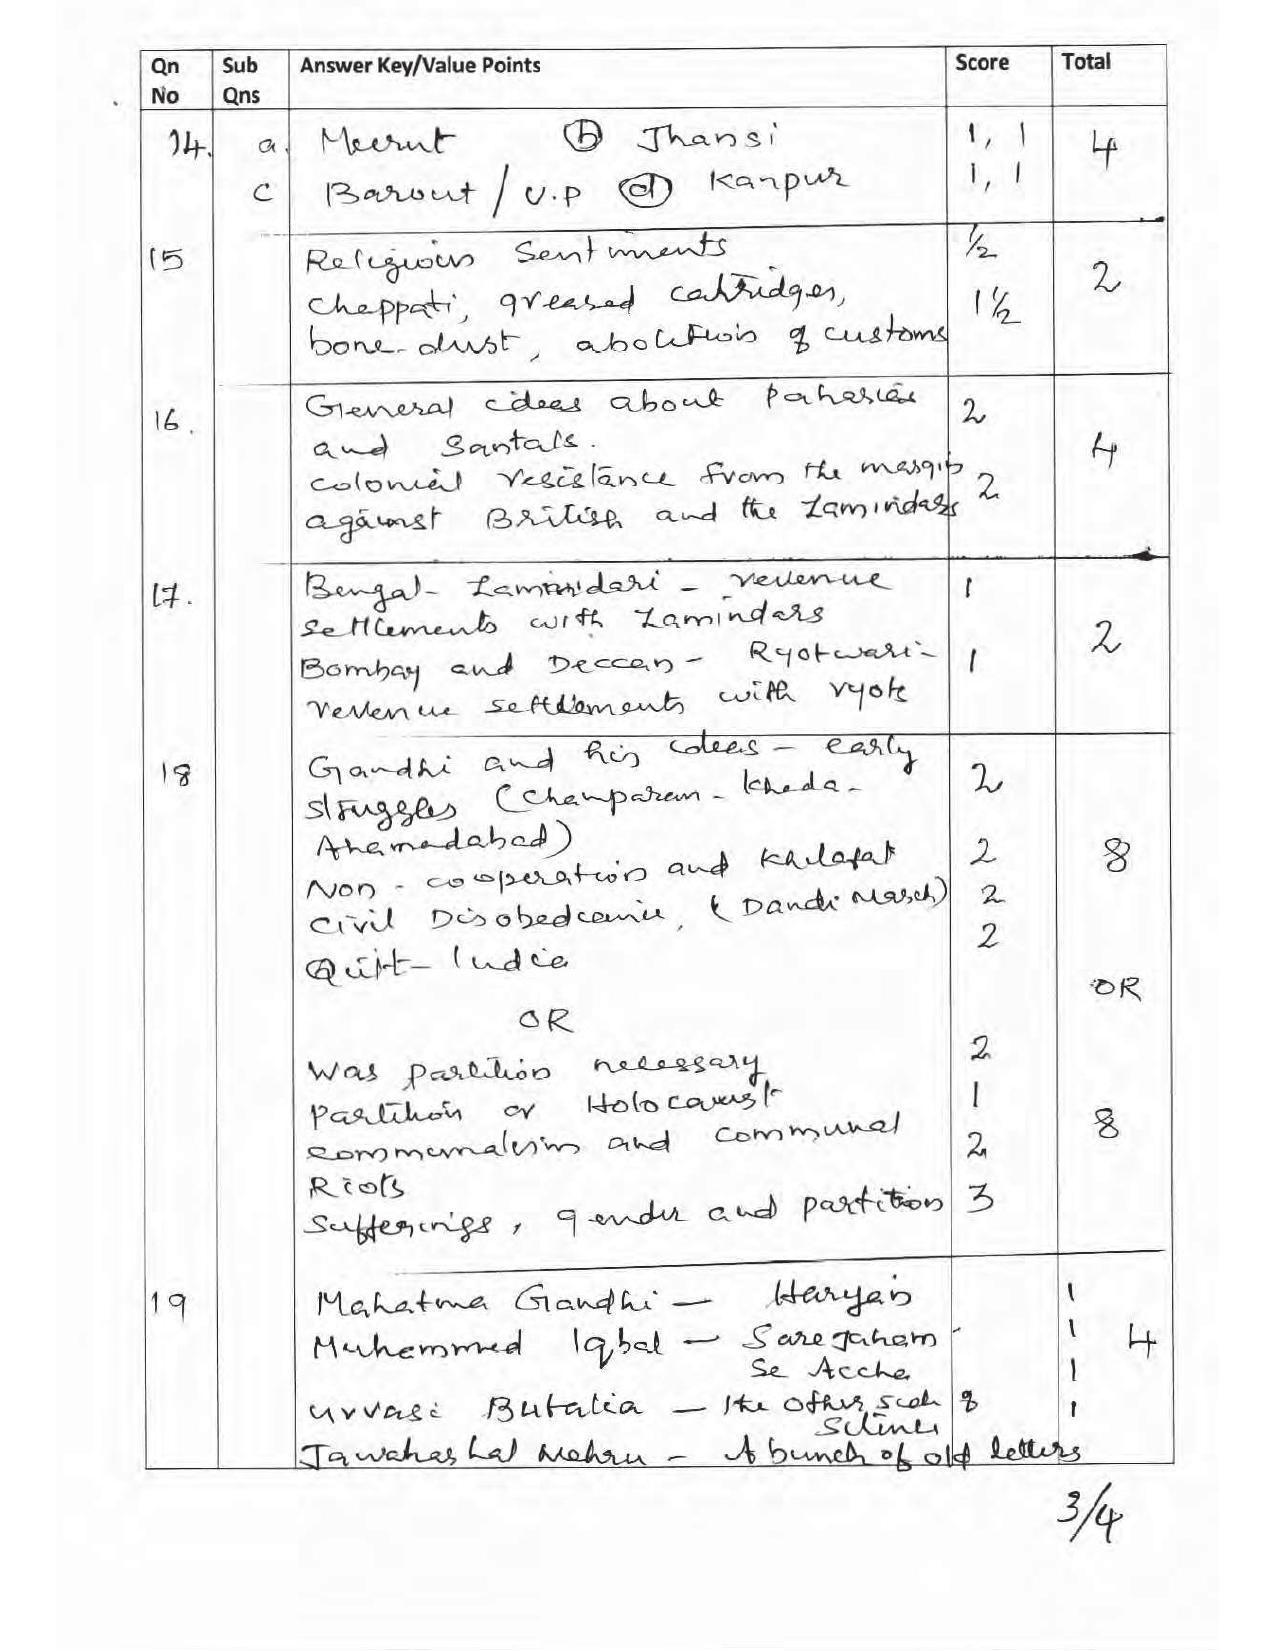 Qn No Sub Qns Answer Key/Value Points Score Total
14. a. Meerut (b) Jhansi 1, 1 4
c Barout / U.P (d) Kanpur 1, 1
15 Religious Sentiments ½ 2
Chappati, greased cartridges, 1½
bone-dust, abolition of customs
16. General ideas about Paharias 2 4
and Santals.
colonial resistance from the margin 2
against British and the Zamindars
17. Bengal - Zamindari - revenue 1 2
settlements with Zamindars
Bombay and Deccan - Ryotwari - 1
revenue settlements with ryots
18 Gandhi and his ideas - early 2 8
struggles (Champaran - Kheda -
Ahamadabad)
Non - cooperation and Khilafat 2
Civil Disobedience, (Dandi March) 2
Quit - India 2
OR OR
Was partition necessary 2 8
Partition or Holocaust 1
communalism and communal 2
Riots
Sufferings, gender and partition 3
19 Mahatma Gandhi - Harijan 1 4
Muhammed Iqbal - Sare Jaham 1
Se Accha 1
Urvasi Butalia - The other side of 1
Silence
Jawahar Lal Nehru - A bunch of old letters
3/4